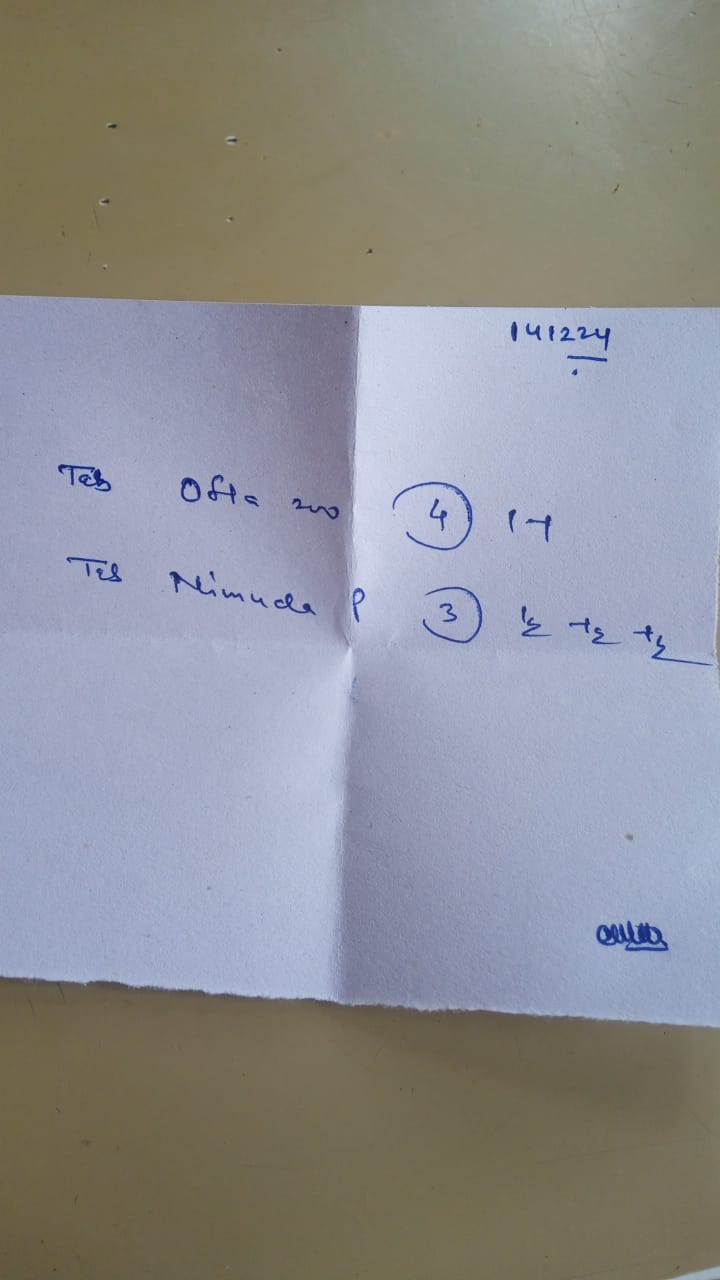 141224
Tab Ofla 200 4 1-1
Tab Nimuda P 3 ½ - ½ - ½